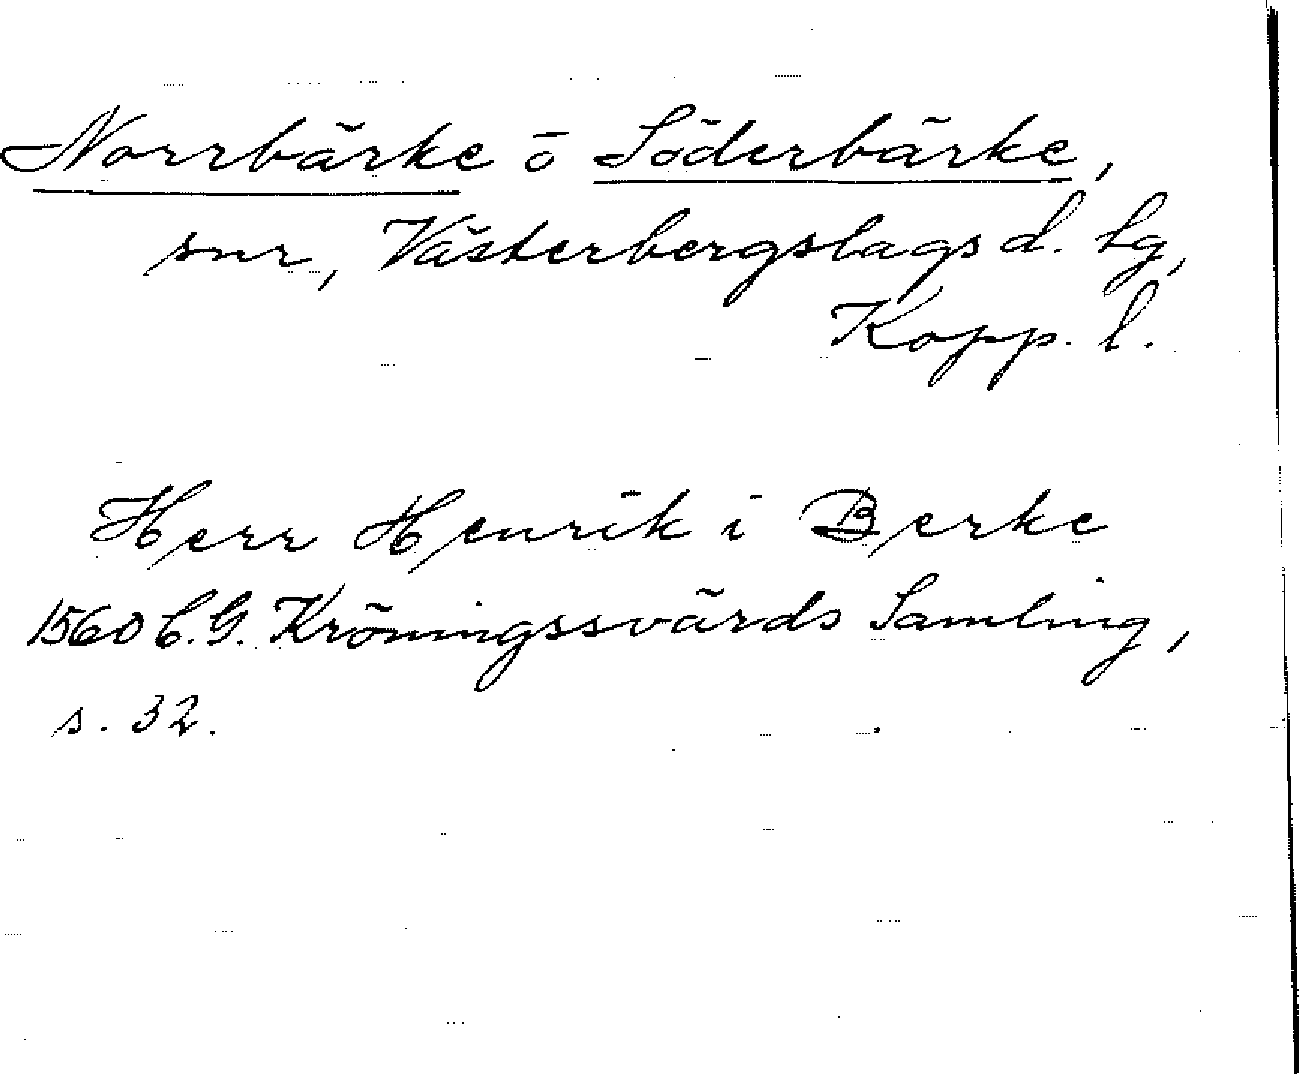 Norrbärke o Söderbärke,
snr, Västerbergslags d. lg,
Kopp. l.
Herr Henrik i Berke
1560 C.G. Kröningssvärds Samling,
s. 32.